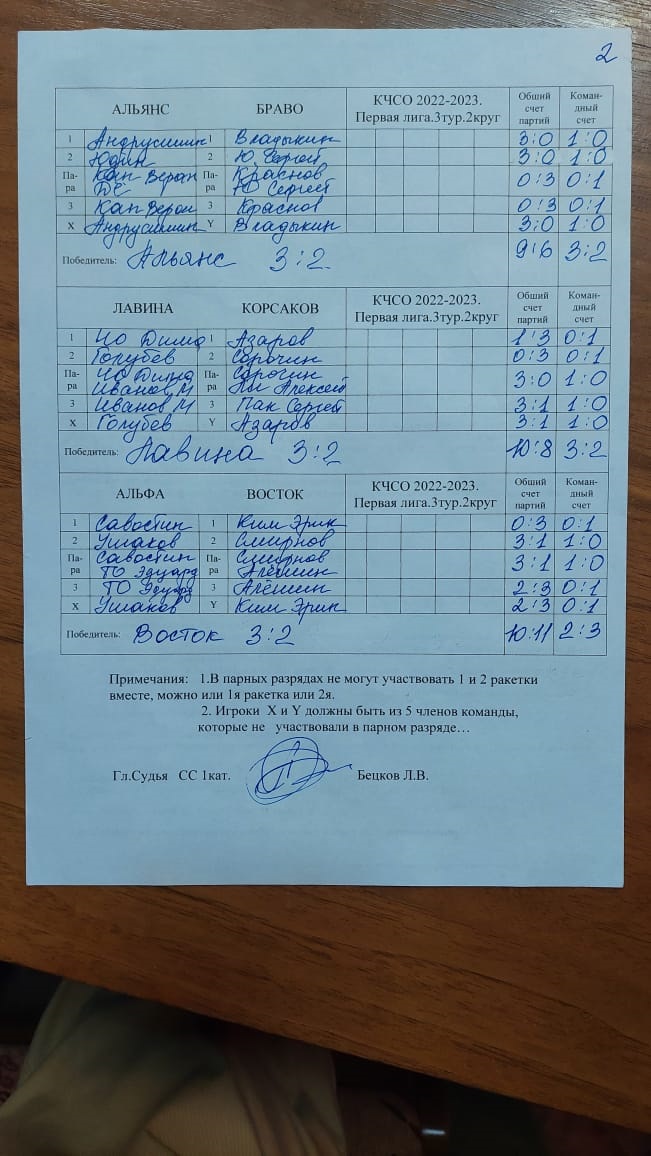 2
АЛЬЯНС БРАВО КЧСО 2022-2023. Первая лига.3тур.2круг Общий счет партий Коман-дный счет
1 Андрусишин 1 Владыкин 3:0 1:0
2 Юдин 2 Ю Сергей 3:0 1:0
Па-ра Кан Верон Па-ра Краснов 0:3 0:1
Ю Сергей
3 Кан Верон 3 Краснов 0:3 0:1
X Андрусишин Y Владыкин 3:0 1:0
Победитель: Альянс 3:2 9:6 3:2
ЛАВИНА КОРСАКОВ КЧСО 2022-2023. Первая лига.3тур.2круг Общий счет партий Коман-дный счет
1 Чо Дима 1 Азаров 1:3 0:1
2 Голубев 2 Сорочин 0:3 0:1
Па-ра Чо Дима Па-ра Сорочин 3:0 1:0
Иванов М Алексей
3 Иванов М 3 Пак Сергей 3:1 1:0
X Голубев Y Азаров 3:1 1:0
Победитель: Лавина 3:2 10:8 3:2
АЛЬФА ВОСТОК КЧСО 2022-2023. Первая лига.3тур.2круг Общий счет партий Коман-дный счет
1 Савостин 1 Ким Эрик 0:3 0:1
2 Ушаков 2 Смирнов 3:1 1:0
Па-ра Савостин Па-ра Смирнов 3:1 1:0
ТО Эдуард Алёшин
3 ТО Эдуард 3 Алёшин 2:3 0:1
X Ушаков Y Ким Эрик 2:3 0:1
Победитель: Восток 3:2 10:11 2:3
Примечания: 1.В парных разрядах не могут участвовать 1 и 2 ракетки
вместе, можно или 1я ракетка или 2я.
2. Игроки X и Y должны быть из 5 членов команды,
которые не участвовали в парном разряде…
Гл.Судья СС 1кат. Бецков Л.В.